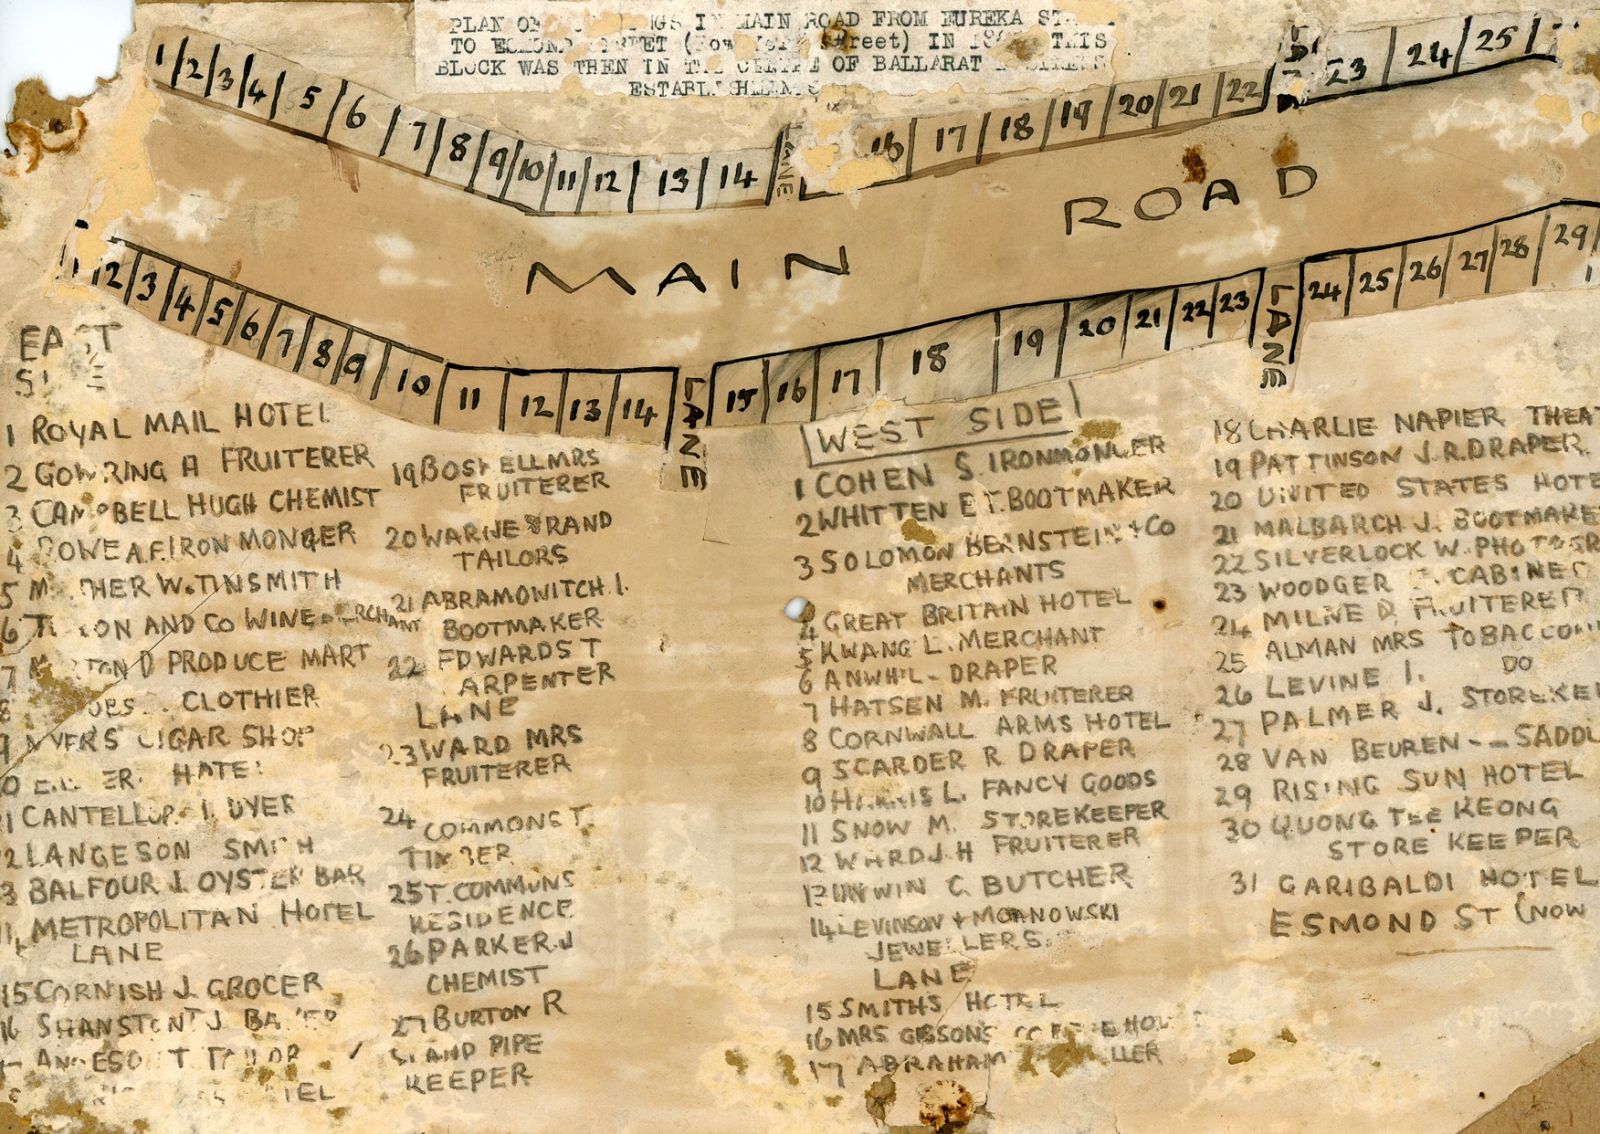 PLAN OF IN MAIN ROAD FROM EUREKA
TO ESMOND STREET (Now York Street) IN THIS
BLOCK WAS THEN IN THE CENTRE OF BALLARAT
ESTABLISHMENTS
1 2 3 4 5 6 7 8 9 10 11 12 13 14 LANE 16 17 18 19 20 21 22 23 24 25
MAIN ROAD
1 2 3 4 5 6 7 8 9 10 11 12 13 14 LANE 15 16 17 18 19 20 21 22 23 LANE 24 25 26 27 28 29
EAST
SIDE
1 ROYAL MAIL HOTEL
2 GOWRING A FRUITERER
3 CAMPBELL HUGH CHEMIST
4 ROWE A.F. IRON MONGER
5 W. TINSMITH
6 AND CO WINE MERCHANT
7 D PRODUCE MART
8 CLOTHIER
9 MYERS CIGAR SHOP
10
11 CANTELLO I. DYER
12 LANGESON SMITH
13 BALFOUR J. OYSTER BAR
14 METROPOLITAN HOTEL
LANE
15 CORNISH J. GROCER
16 SHANSTON T J BAKER
17 T TAILOR
HOTEL
19 BOSWELL MRS
FRUITERER
20 WARNE & RAND
TAILORS
21 ABRAMOWITCH I.
BOOTMAKER
22 EDWARDS T
CARPENTER
LANE
23 WARD MRS
FRUITERER
24 COMMONS T.
TIMBER
25 T. COMMONS
RESIDENCE
26 PARKER J
CHEMIST
27 BURTON R
STAND PIPE
KEEPER
WEST SIDE
1 COHEN S. IRONMONGER
2 WHITTEN E T. BOOTMAKER
3 SOLOMON BERNSTEIN + CO
MERCHANTS
4 GREAT BRITAIN HOTEL
5 KWANG L. MERCHANT
6 ANWHIL - DRAPER
7 HATSEN M. FRUITERER
8 CORNWALL ARMS HOTEL
9 SCARDER R DRAPER
10 HARRIS L. FANCY GOODS
11 SNOW M. STOREKEEPER
12 WARD J. H FRUITERER
13 UNWIN C. BUTCHER
14 LEVINSON + MOANOWSKI
JEWELLERS.
LANE
15 SMITHS HOTEL
16 MRS GIBSONS COFFEE HOU
17 ABRAHAM
18 CHARLIE NAPIER THEAT
19 PATTINSON J. R. DRAPER
20 UNITED STATES HOTE
21 MALBARCH J. BOOTMAKE
22 SILVERLOCK W. PHOTOGR
23 WOODGER CABINET
24 MILNE D. FRUITERER
25 ALMAN MRS TOBACCONI
26 LEVINE I. DO
27 PALMER J. STOREKEE
28 VAN BEUREN -- SADDL
29 RISING SUN HOTEL
30 QUONG TEE KEONG
STORE KEEPER
31 GARIBALDI HOTEL
ESMOND ST (NOW